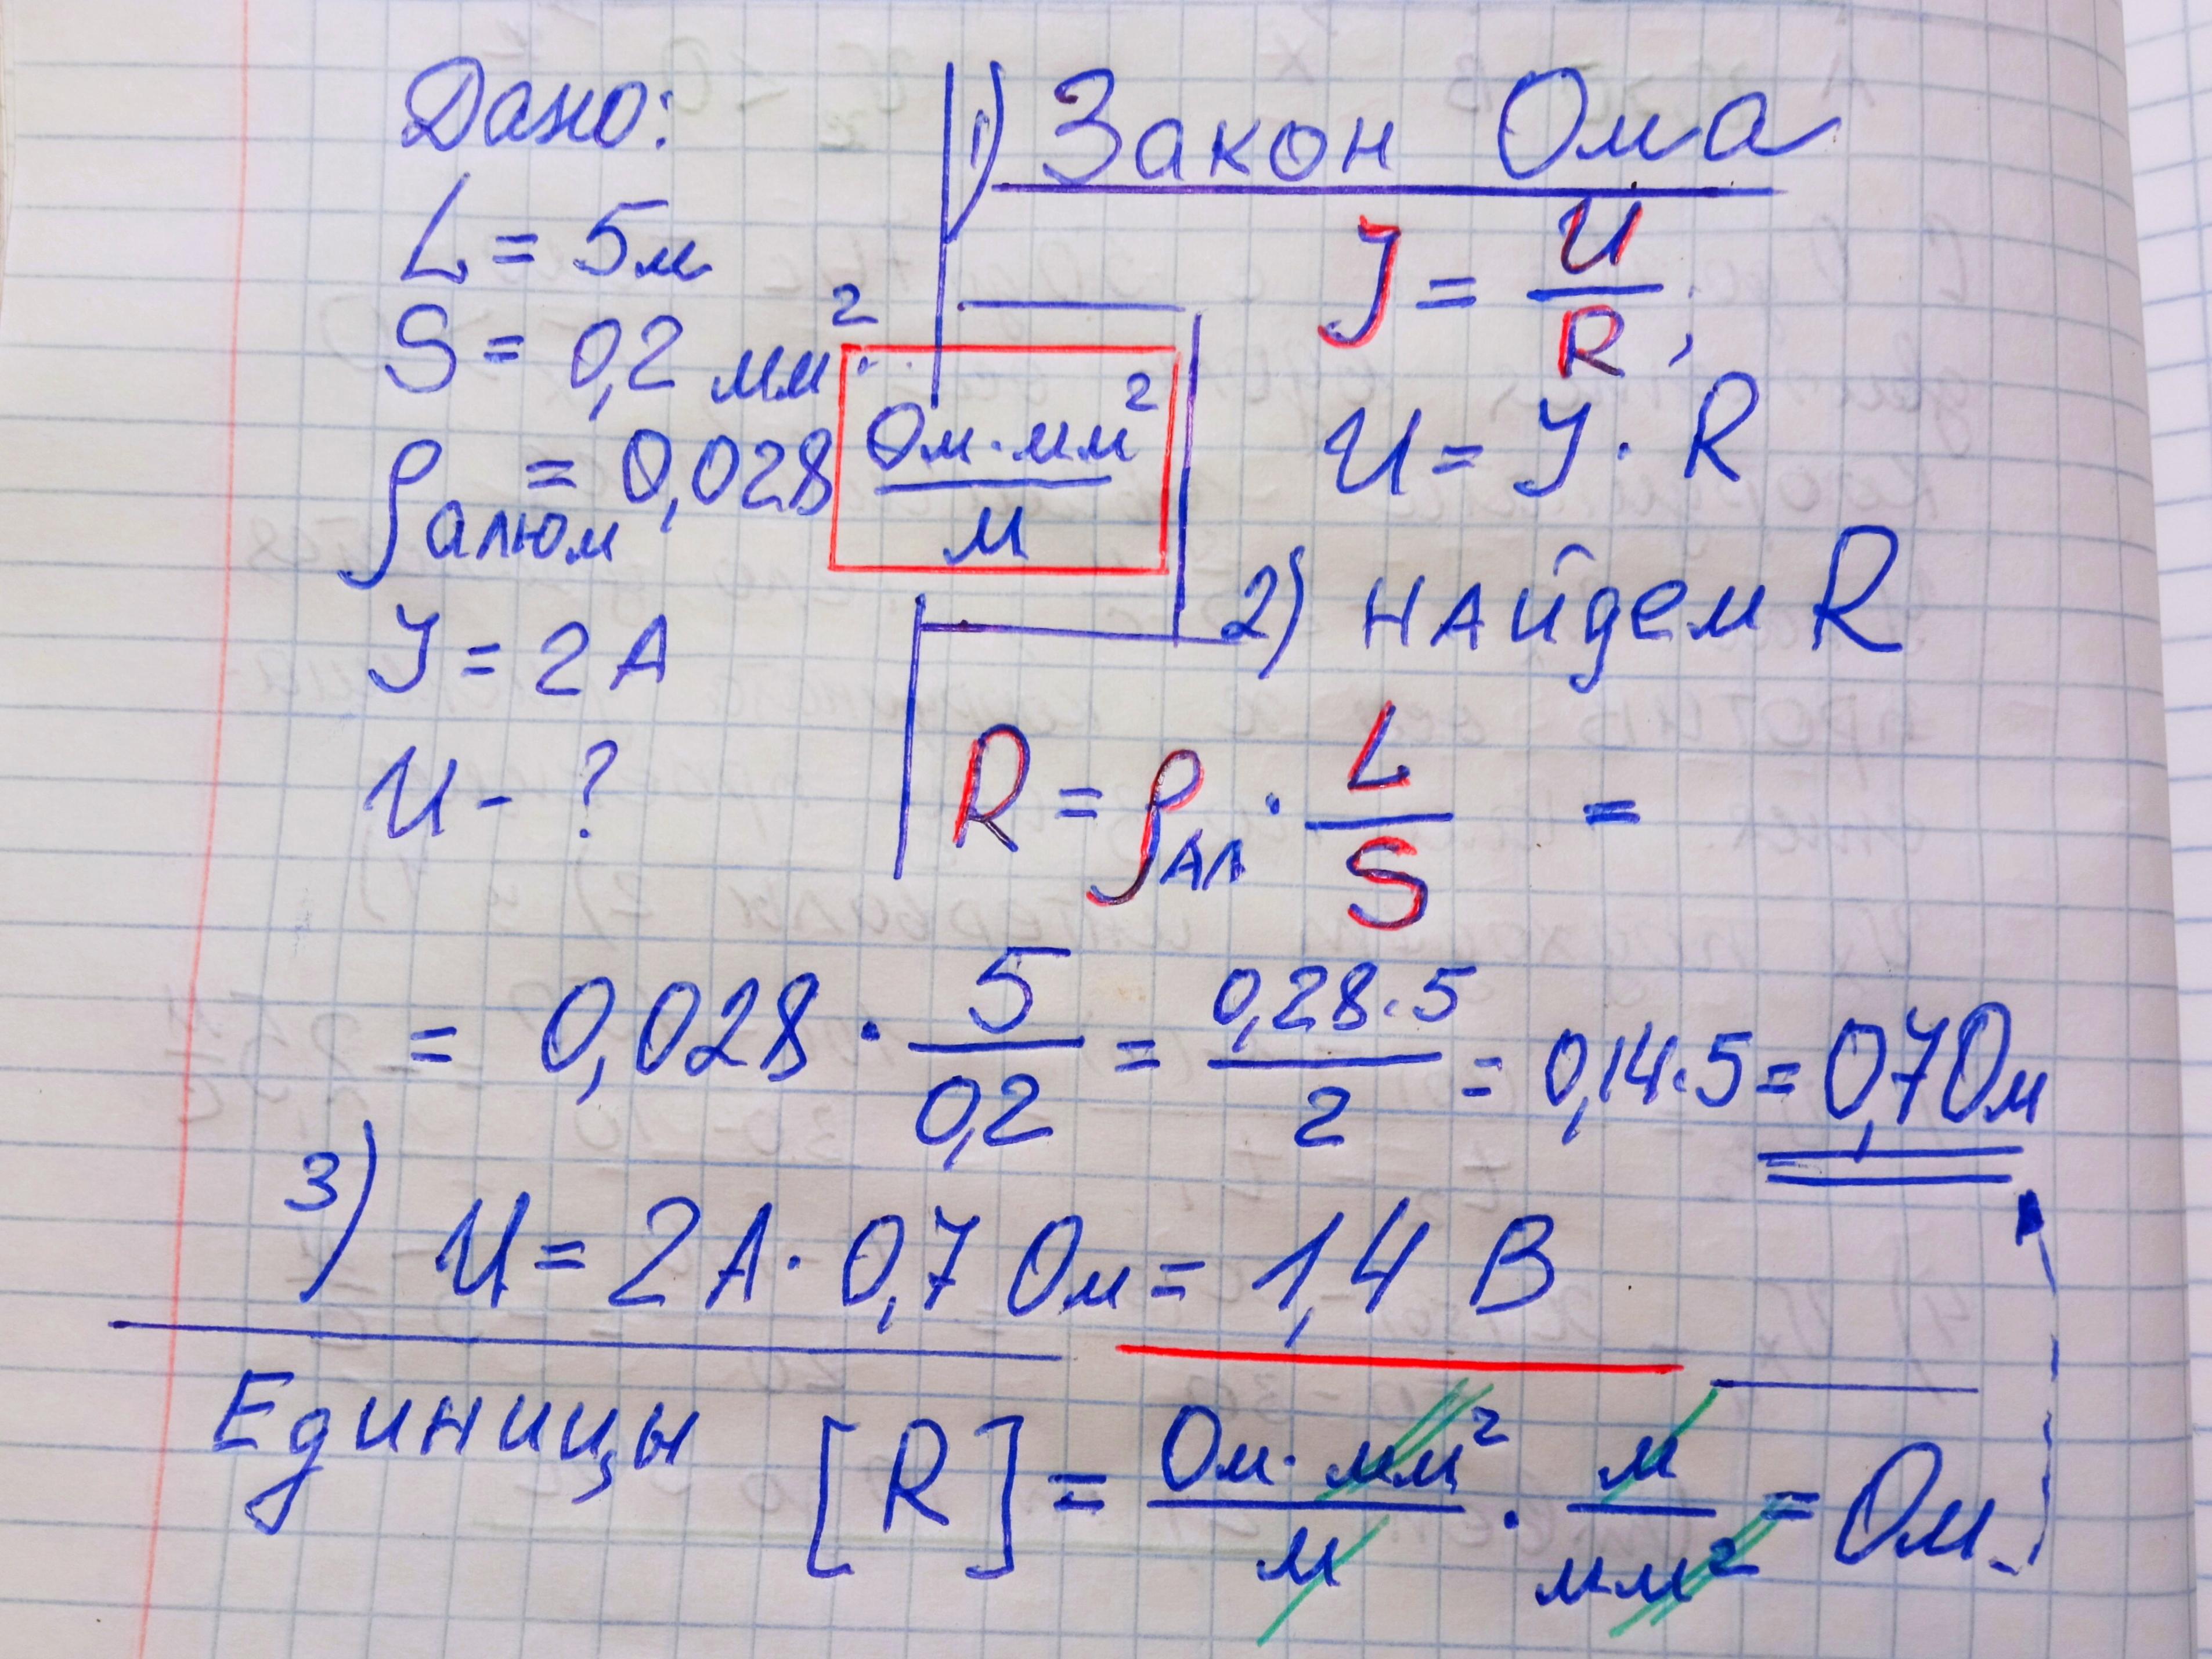 Дано:
L = 5м
S = 0,2 мм²
ρалюм = 0,028 Ом·мм²/м
J = 2 А
U - ?
1) Закон Ома
J = U/R;
U = J · R
2) найдем R
R = ρал · L/S =
= 0,028 · 5/0,2 = 0,28·5/2 = 0,14·5 = 0,7 Ом
3) U = 2А · 0,7 Ом = 1,4 В
Единицы [R] = Ом·мм²/м · м/мм² = Ом.